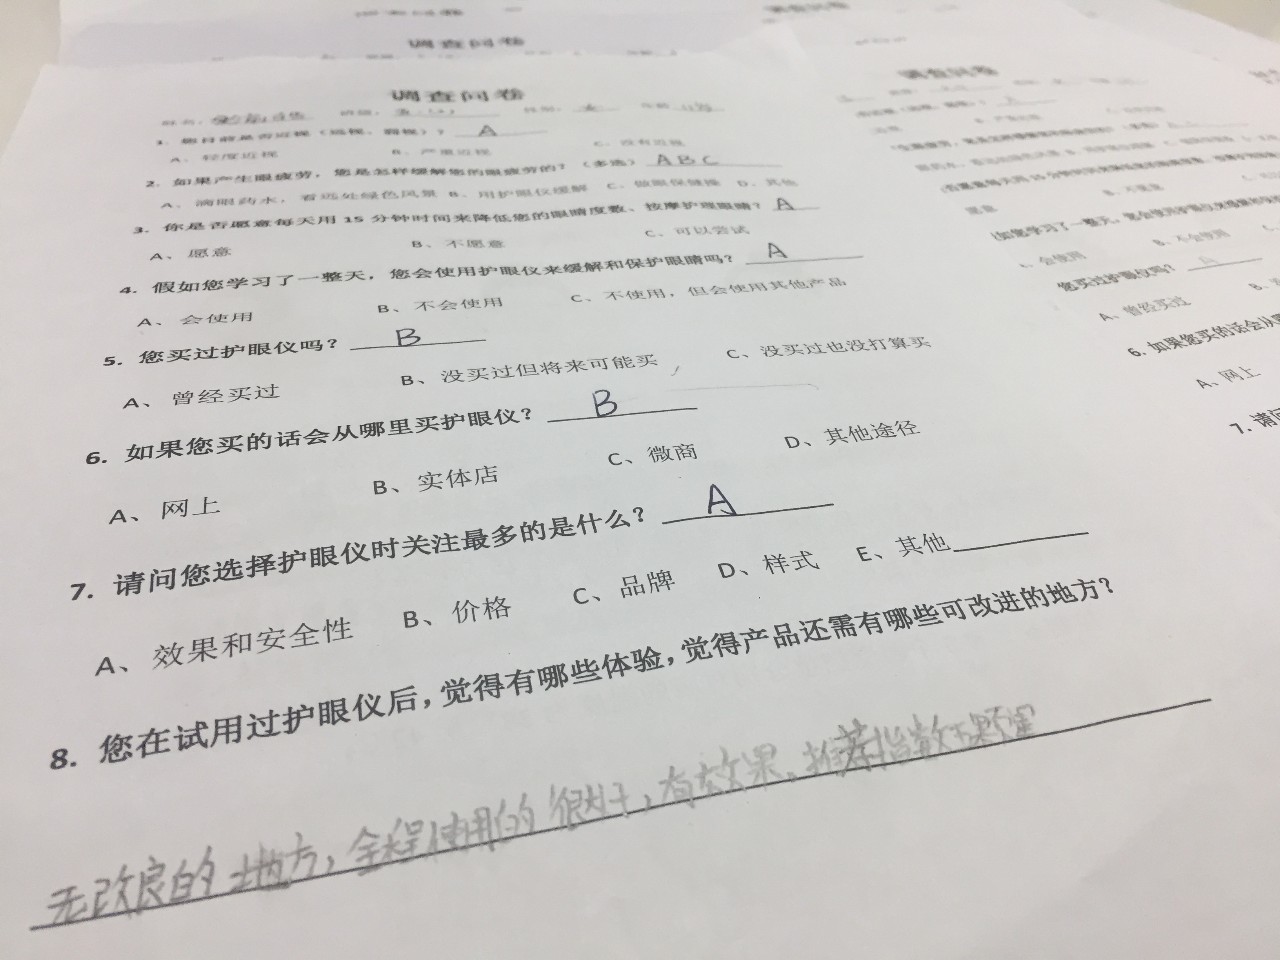 调查问卷
调查问卷
1. 您目前是否近视（远视、弱视）？ A
A、轻度近视 B、严重近视 C、没有近视
2. 如果产生眼疲劳，您是怎样缓解您的眼疲劳的？（多选） ABC
A、滴眼药水，看远处绿色风景 B、用护眼仪缓解 C、做眼保健操 D、其他
3. 你是否愿意每天用15分钟时间来降低您的眼睛度数、按摩护理眼睛？ A
A、愿意 B、不愿意 C、可以尝试
4. 假如您学习了一整天，您会使用护眼仪来缓解和保护眼睛吗？ A
A、会使用 B、不会使用 C、不使用，但会使用其他产品
5. 您买过护眼仪吗？ B
A、曾经买过 B、没买过但将来可能买 C、没买过也没打算买
6. 如果您买的话会从哪里买护眼仪？ B
A、网上 B、实体店 C、微商 D、其他途径
7. 请问您选择护眼仪时关注最多的是什么？ A
A、效果和安全性 B、价格 C、品牌 D、样式 E、其他
8. 您在试用过护眼仪后，觉得有哪些体验，觉得产品还需有哪些可改进的地方？
无改良的地方，全程使用的很好，有效果。推荐指数五颗星
调查问卷
（如您学习了一整天，您会使用护眼仪来缓解
会使用 B、不会使用
您买过护眼仪吗？
A、曾经买过 B、
6. 如果您买的话会从
A、网上
7. 请问